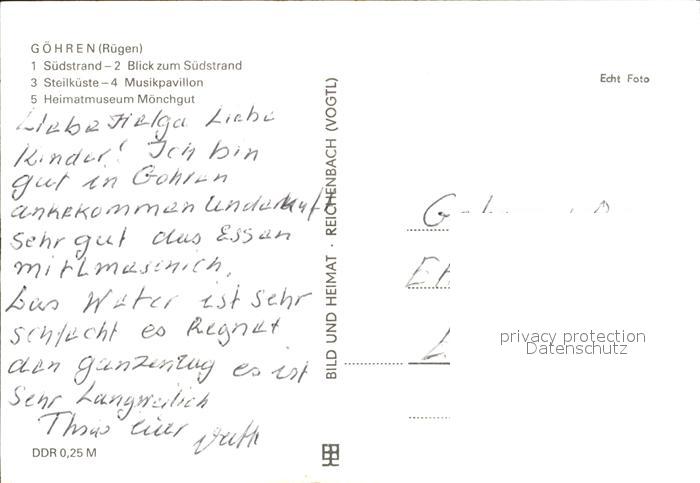 GÖHREN (Rügen)
1 Südstrand – 2 Blick zum Südstrand
3 Steilküste – 4 Musikpavillon
5 Heimatmuseum Mönchgut
Liebe Helga Liebe
Kinder! Ich bin
gut in Gohren
ankekommen
sehr gut das Essen
mit
Das Water ist sehr
schlacht es Regnet
den ganzentag es ist
Sehr Langweilich
euer
DDR 0,25 M
BILD UND HEIMAT · REICHENBACH (VOGTL)
Echt Foto
privacy protection
Datenschutz